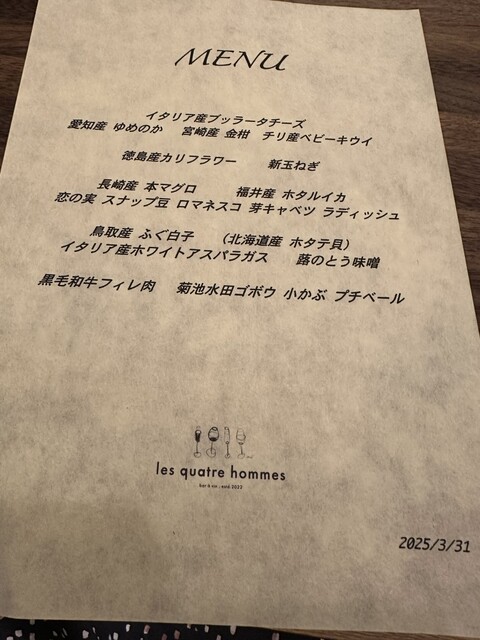 MENU
イタリア産ブッラータチーズ
愛知産 ゆめのか 宮崎産 金柑 チリ産ベビーキウイ
徳島産カリフラワー 新玉ねぎ
長崎産 本マグロ 福井産 ホタルイカ
恋の実 スナップ豆 ロマネスコ 芽キャベツ ラディッシュ
鳥取産 ふぐ白子 (北海道産 ホタテ貝)
イタリア産ホワイトアスパラガス 蕗のとう味噌
黒毛和牛フィレ肉 菊池水田ゴボウ 小かぶ プチベール
les quatre hommes
2025/3/31